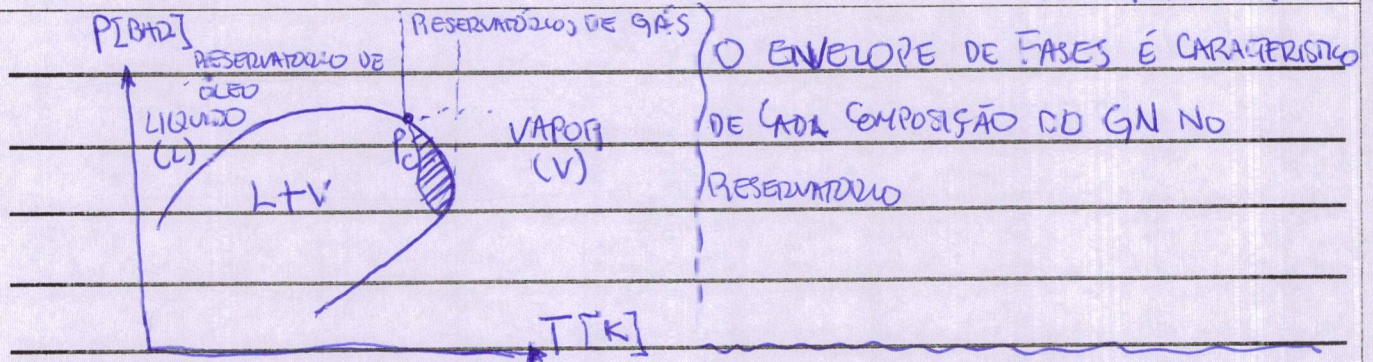 P[BAR]
RESERVATÓRIO DE
ÓLEO
RESERVATÓRIOS DE GÁS
LIQUIDO
(L)
PC
VAPOR
(V)
L+V
T[K]
O ENVELOPE DE FASES É CARACTERISTICO
DE CADA COMPOSIÇÃO DO GN NO
RESERVATÓRIO